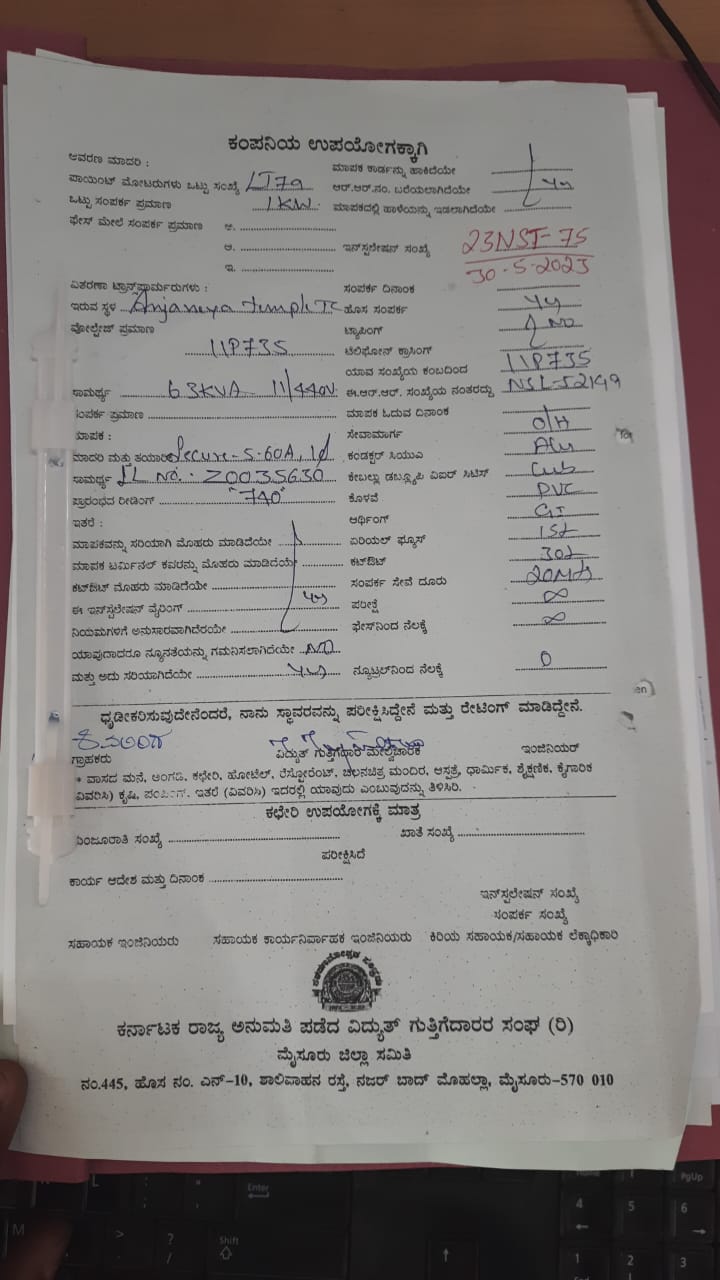 ಕಂಪನಿಯ ಉಪಯೋಗಕ್ಕಾಗಿ
ಆವರಣ ಮಾದರಿ : ಮಾಪಕ ಕಾರ್ಡನ್ನು ಹಾಕಿದೆಯೇ
ಪಾಯಿಂಟ್ ಮೋಟರುಗಳು ಒಟ್ಟು ಸಂಖ್ಯೆ LT7a ಆರ್.ಆರ್.ನಂ. ಬರೆಯಲಾಗಿದೆಯೇ
ಒಟ್ಟು ಸಂಪರ್ಕ ಪ್ರಮಾಣ 1KW. ಮಾಪಕದಲ್ಲಿ ಹಾಳೆಯನ್ನು ಇಡಲಾಗಿದೆಯೇ
ಫೇಸ್ ಮೇಲೆ ಸಂಪರ್ಕ ಪ್ರಮಾಣ ಅ.
ಆ. ಇನ್ಸ್ಟಲೇಷನ್ ಸಂಖ್ಯೆ 23NST-75
ಇ. 30-5-2023
ವಿತರಣಾ ಟ್ರಾನ್ಸ್‌ಫಾರ್ಮರುಗಳು : ಸಂಪರ್ಕ ದಿನಾಂಕ
ಇರುವ ಸ್ಥಳ Anjaneya temple TC ಹೊಸ ಸಂಪರ್ಕ
ವೋಲ್ಟೇಜ್ ಪ್ರಮಾಣ ಟ್ಯಾಪಿಂಗ್ NO
11P735 ಟೆಲಿಫೋನ್ ಕ್ರಾಸಿಂಗ್
ಯಾವ ಸಂಖ್ಯೆಯ ಕಂಬದಿಂದ 11P735
ಸಾಮರ್ಥ್ಯ 63KVA - 11/440V. ಈ.ಆರ್.ಆರ್. ಸಂಖ್ಯೆಯ ನಂತರದ್ದು NSL-52149
ಸಂಪರ್ಕ ಪ್ರಮಾಣ ಮಾಪಕ ಓದುವ ದಿನಾಂಕ
ಮಾಪಕ : ಸೇವಾಮಾರ್ಗ O/H
ಮಾದರಿ ಮತ್ತು ತಯಾರಿ Secure-5-60A, 1ø ಕಂಡಕ್ಟರ್ ಸಿಯುಎ Alu
ಸಾಮರ್ಥ್ಯ SL No. : Z0035630 ಕೇಬಲ್ಲು ಡಬ್ಲ್ಯೂಪಿ ವಿಐರ್ ಸಿಟಿಸ್
ಪ್ರಾರಂಭದ ರೀಡಿಂಗ್ "740" ಕೊಳವೆ PVC
ಇತರೆ : ಆರ್ಥಿಂಗ್ GI
ಮಾಪಕವನ್ನು ಸರಿಯಾಗಿ ಮೊಹರು ಮಾಡಿದೆಯೇ ಏರಿಯಲ್ ಫ್ಯೂಸ್
ಮಾಪಕ ಟರ್ಮಿನಲ್ ಕವರನ್ನು ಮೊಹರು ಮಾಡಿದೆಯೇ ಕಟ್‌ಔಟ್
ಕಟ್‌ಔಟ್ ಮೊಹರು ಮಾಡಿದೆಯೇ ಸಂಪರ್ಕ ಸೇವೆ ದೂರು 20Mts
ಈ ಇನ್‌ಸ್ಟಲೇಷನ್ ವೈರಿಂಗ್ ಪರೀಕ್ಷೆ ∞
ನಿಯಮಗಳಿಗೆ ಅನುಸಾರವಾಗಿದೆರೆಯೇ ಫೇಸ್‌ನಿಂದ ನೆಲಕ್ಕೆ ∞
ಯಾವುದಾದರೂ ನ್ಯೂನತೆಯನ್ನು ಗಮನಿಸಲಾಗಿದೆಯೇ NO
ಮತ್ತು ಅದು ಸರಿಯಾಗಿದೆಯೇ Yes ನ್ಯೂಟ್ರಲ್‌ನಿಂದ ನೆಲಕ್ಕೆ 0
ಧೃಡೀಕರಿಸುವುದೇನೆಂದರೆ, ನಾನು ಸ್ಥಾವರವನ್ನು ಪರೀಕ್ಷಿಸಿದ್ದೇನೆ ಮತ್ತು ರೇಟಿಂಗ್ ಮಾಡಿದ್ದೇನೆ.
ಗ್ರಾಹಕರು ವಿದ್ಯುತ್ ಗುತ್ತಿಗೆದಾರ ಮೇಲ್ವಿಚಾರಕ ಇಂಜಿನಿಯರ್
* ವಾಸದ ಮನೆ, ಅಂಗಡಿ, ಕಛೇರಿ, ಹೋಟೆಲ್, ರೆಸ್ಟೋರೆಂಟ್, ಚಲನಚಿತ್ರ ಮಂದಿರ, ಆಸ್ಪತ್ರೆ, ಧಾರ್ಮಿಕ, ಶೈಕ್ಷಣಿಕ, ಕೈಗಾರಿಕ
ವಿವರಿಸಿ) ಕೃಷಿ, ಪಂಪಿಂಗ್, ಇತರೆ (ವಿವರಿಸಿ) ಇದರಲ್ಲಿ ಯಾವುದು ಎಂಬುವುದನ್ನು ತಿಳಿಸಿರಿ.
ಕಛೇರಿ ಉಪಯೋಗಕ್ಕೆ ಮಾತ್ರ
ಮಂಜೂರಾತಿ ಸಂಖ್ಯೆ ಖಾತೆ ಸಂಖ್ಯೆ
ಪರೀಕ್ಷಿಸಿದೆ
ಕಾರ್ಯ ಆದೇಶ ಮತ್ತು ದಿನಾಂಕ
ಇನ್‌ಸ್ಟಲೇಷನ್ ಸಂಖ್ಯೆ
ಸಂಪರ್ಕ ಸಂಖ್ಯೆ
ಸಹಾಯಕ ಇಂಜಿನಿಯರು ಸಹಾಯಕ ಕಾರ್ಯನಿರ್ವಾಹಕ ಇಂಜಿನಿಯರು ಕಿರಿಯ ಸಹಾಯಕ/ಸಹಾಯಕ ಲೆಕ್ಕಾಧಿಕಾರಿ
ಕರ್ನಾಟಕ ರಾಜ್ಯ ಅನುಮತಿ ಪಡೆದ ವಿದ್ಯುತ್ ಗುತ್ತಿಗೆದಾರರ ಸಂಘ (ರಿ)
ಮೈಸೂರು ಜಿಲ್ಲಾ ಸಮಿತಿ
ನಂ.445, ಹೊಸ ನಂ. ಎನ್-10, ಶಾಲಿವಾಹನ ರಸ್ತೆ, ನಜರ್ ಬಾದ್ ಮೊಹಲ್ಲಾ, ಮೈಸೂರು-570 010
Enter
Shift
PgUp
4 5 6
1 2 3